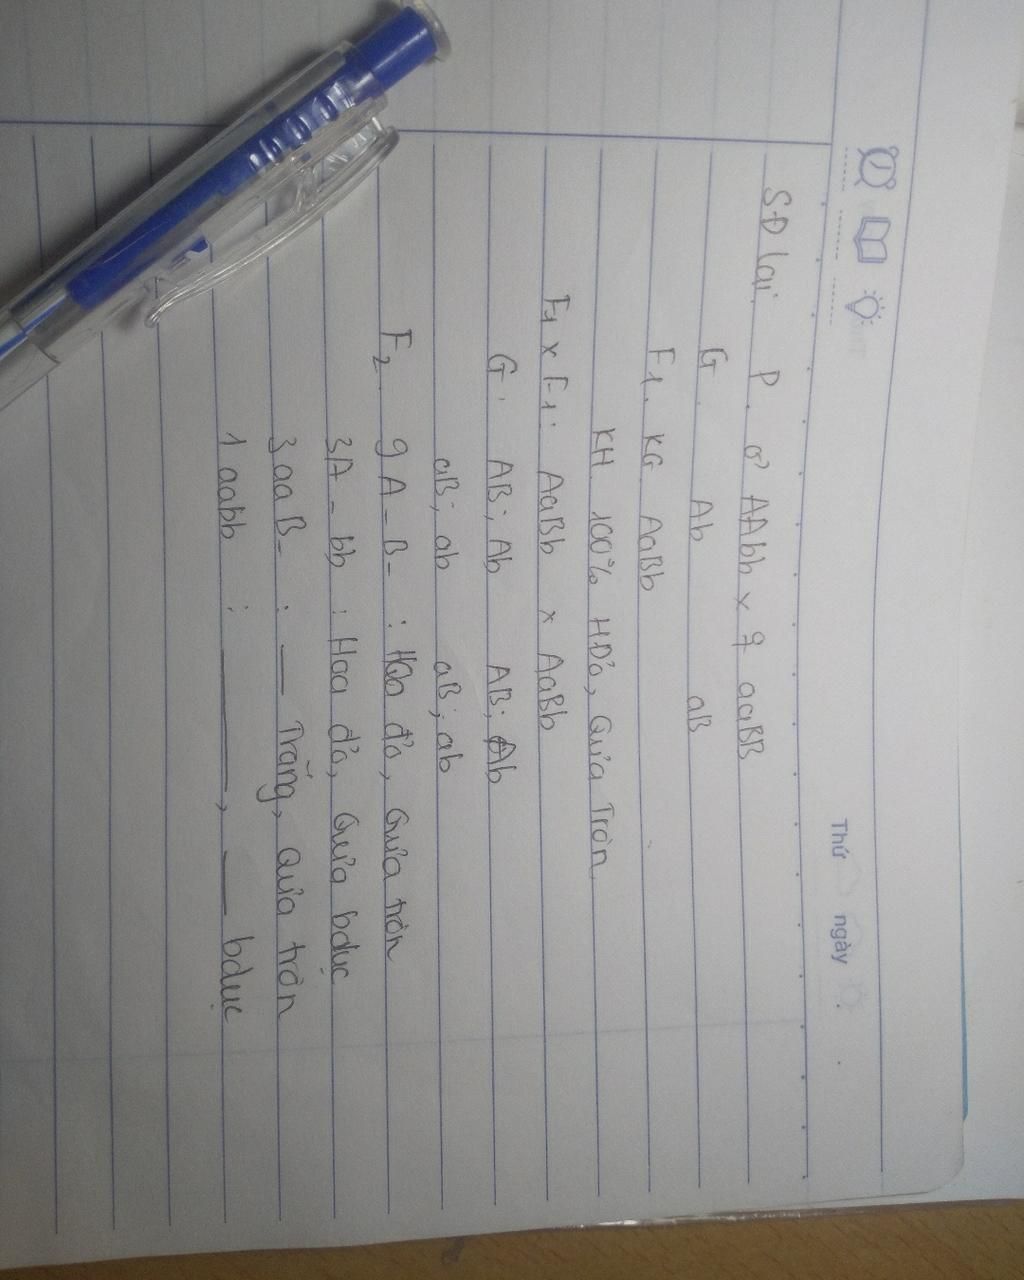 Thứ ngày
SĐ lai: P. ♂ AAbb x ♀ aaBB
G. Ab aB
F1. KG. AaBb
KH. 100% HĐỏ, Qủa Tròn
F1 x F1: AaBb x AaBb
G. AB; Ab AB; Ab
aB; ab aB; ab
F2. 9 A - B - : Hoa đỏ, Qủa tròn
3A - bb : Hoa đỏ, Qủa bdục
3 aaB - : — Trắng, Qủa tròn
1 aabb : ———, — bdục